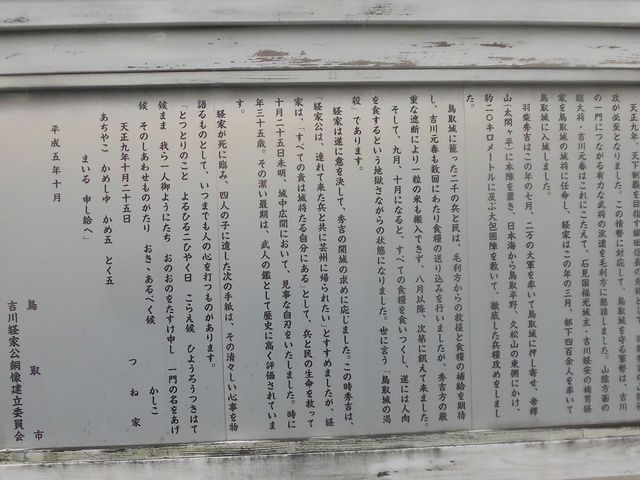 攻が必至となりました。この情勢に対応して、鳥取城を守る軍勢は、吉川
の一門につながる有力な武将の派遣を毛利方に懇請しました。山陰方面の
総大将・吉川元春はこれにこたえて、石見国福光城主・吉川経安の嫡男経
家を鳥取城の城将に任命し、経家はこの年の三月、部下四百余人を率いて
鳥取城に入城しました。
羽柴秀吉はこの年の七月、二万の大軍を率いて鳥取城に押し寄せ、帝釈
山(太閤ヶ平)に本陣を置き、日本海から鳥取平野、久松山の東側にかけ、
約二〇キロメートルに及ぶ大包囲陣を敷いて、徹底した兵糧攻めをしまし
た。
鳥取城に籠った二千の兵と民は、毛利方からの救援と食糧の補給を期待
し、吉川元春も数回にわたり食糧の送り込みを行いましたが、秀吉方の厳
重な遮断により一粒の米も搬入できず、八月以降、次第に飢えて来ました。
そして、九月、十月になると、すべての食糧を食いつくし、遂には人肉
を食するという地獄さながらの状態になりました。世に言う「鳥取城の渇
殺」であります。
経家は遂に意を決して、秀吉の開城の求めに応じました。この時秀吉は、
「経家公は、連れて来た兵と共に芸州に帰られたい」とすすめましたが、経
家は、「すべての責は城将たる自分にある」として、兵と民の生命を救って
十月二十五日未明、城中広間において、見事な自刃をいたしました。時に
年三十五歳。その潔い最期は、武人の鑑として歴史に高く評価されていま
す。
経家が死に臨み、四人の子に遺した次の手紙は、その清々しい心事を物
語るものとして、いつまでも人の心を打つものがあります。
「とつとりのこと よるひる二ひやく日 こらえ候 ひようろうつきはて
候まま 我ら一人御ようにたち おのおのをたすけ申し 一門の名をあげ
候 そのしあわせものがたり おき、あるべく候 かしこ
天正九年十月二十五日 つね家
あちやこ かめしゆ かめ五 とく五
まいる 申し給へ」
平成五年十月
鳥取市
吉川経家公銅像建立委員会